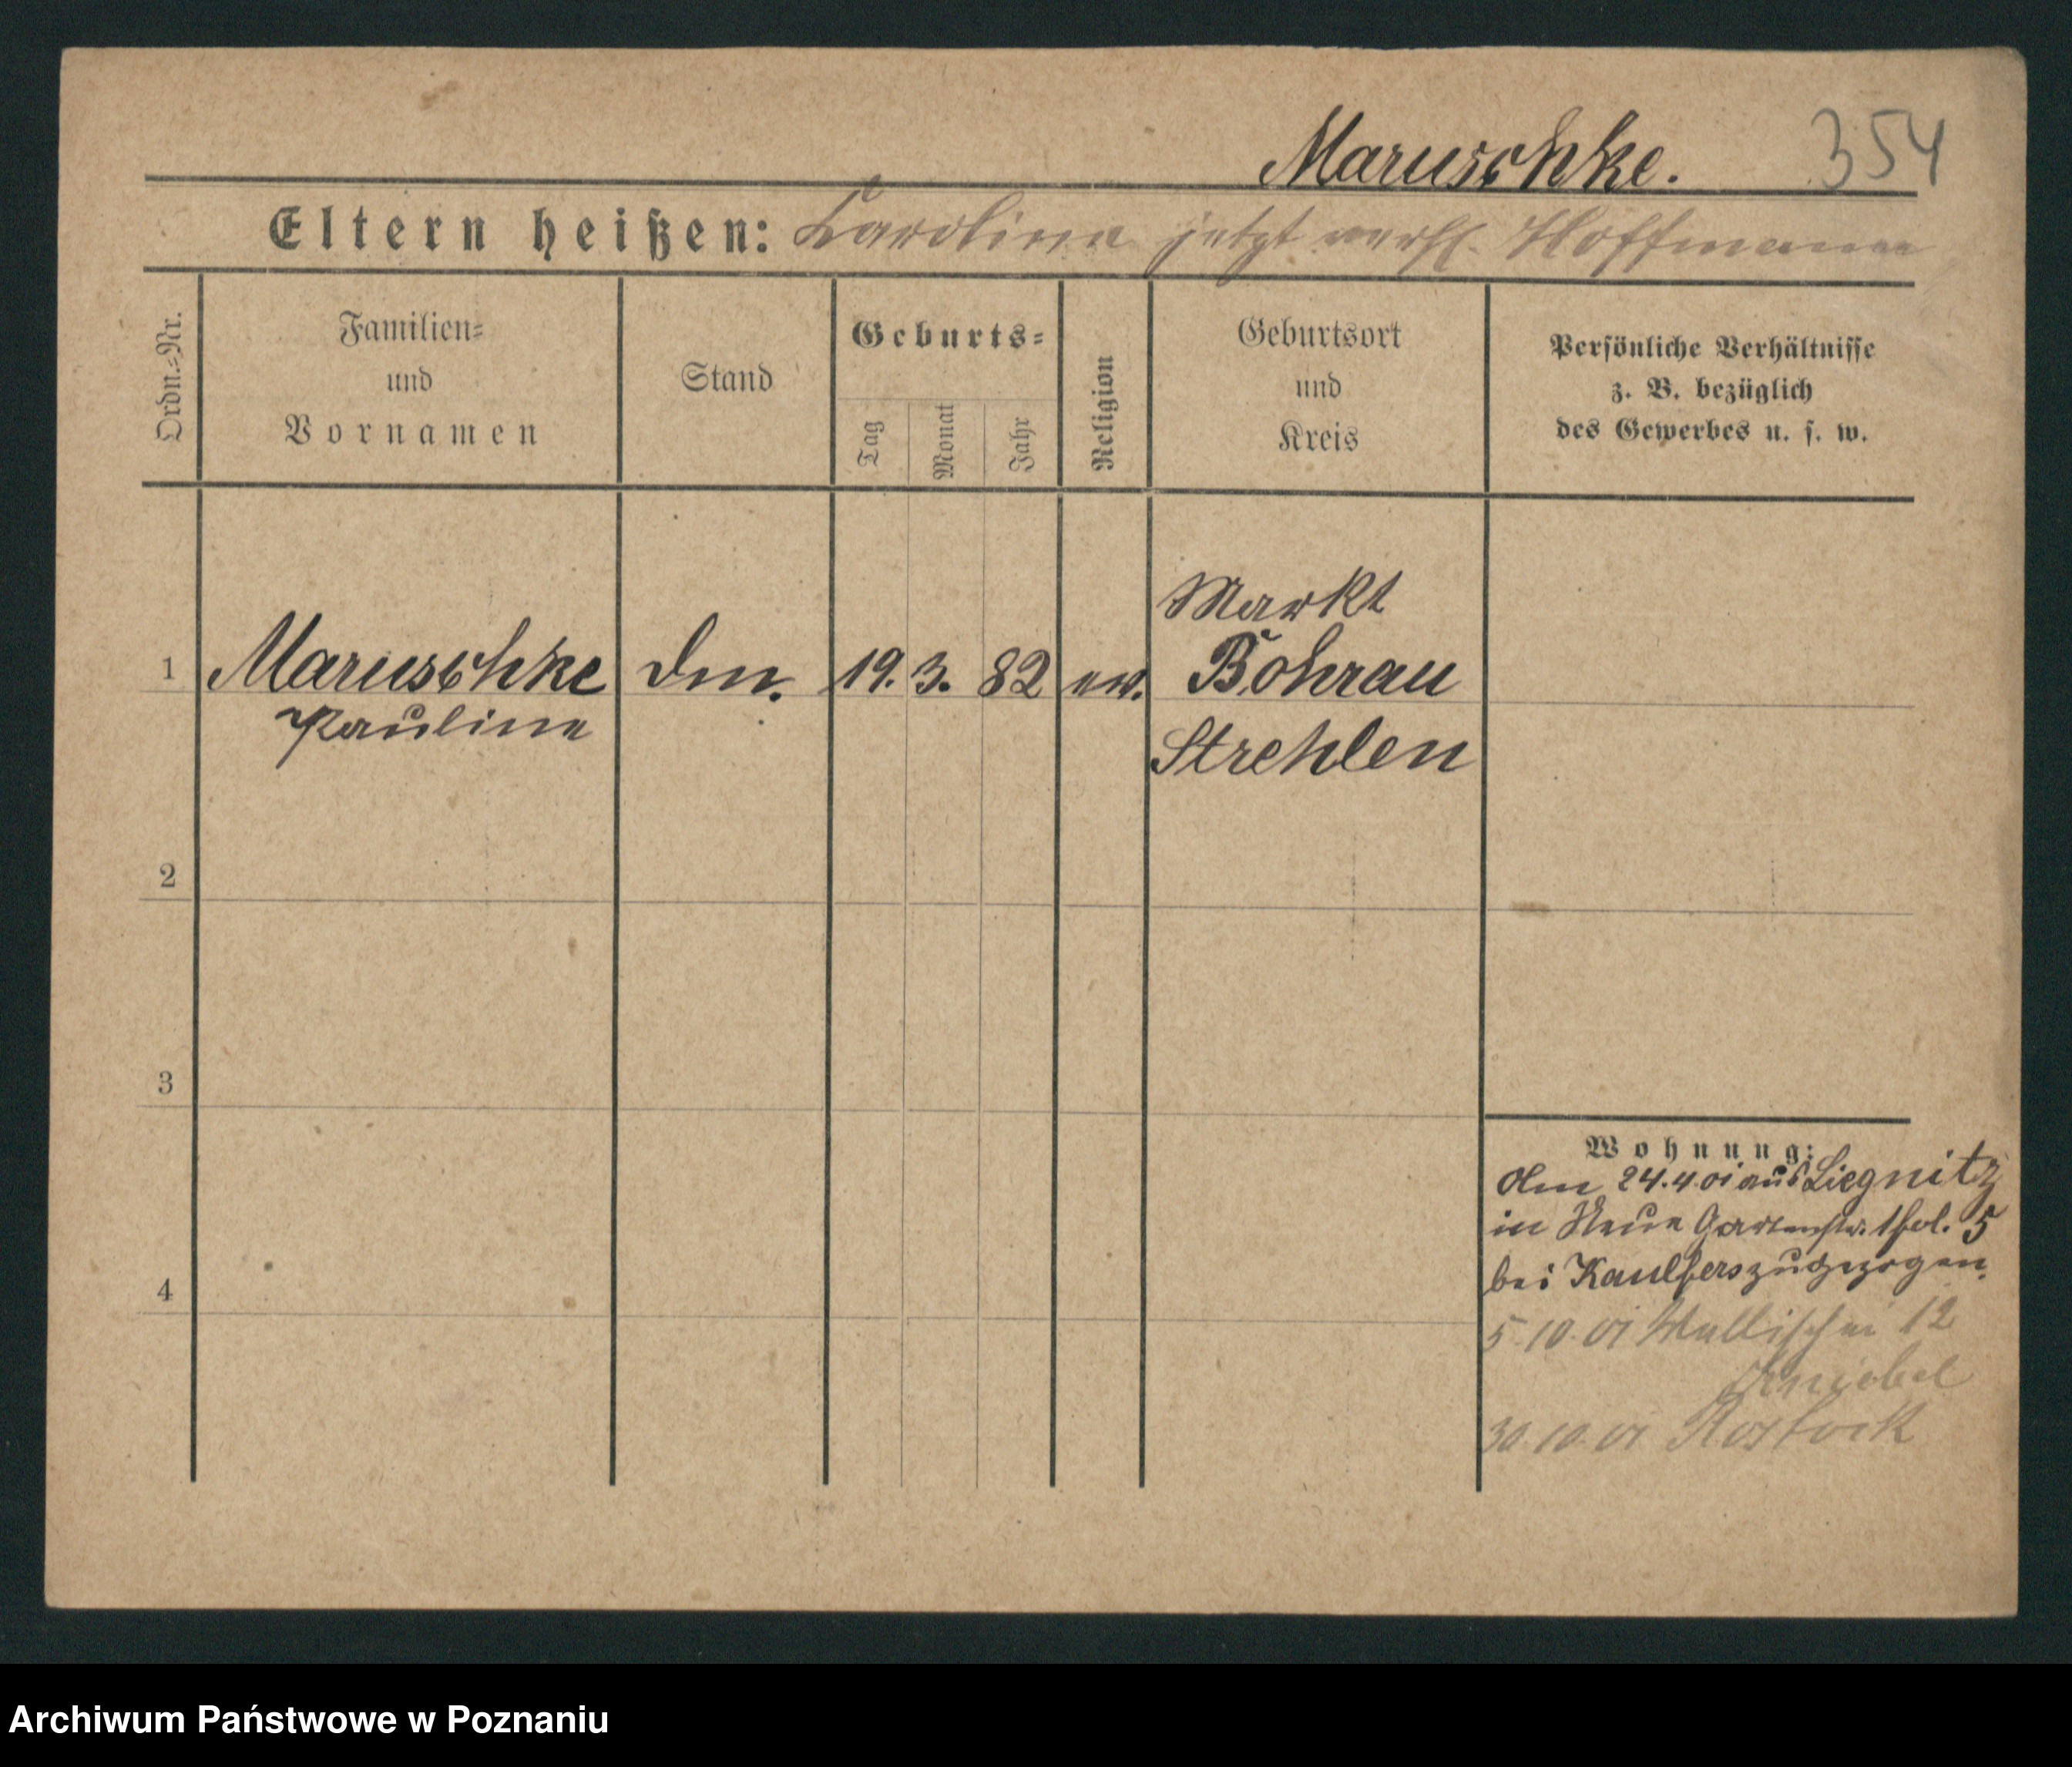 Maruschke. 354
Eltern heißen: Karoline jetzt verehl. Hoffmann
Ordn.=Nr.
Familien=
und
Vornamen
Stand
Geburts=
Tag
Monat
Jahr
Religion
Geburtsort
und
Kreis
Persönliche Verhältnisse
z. B. bezüglich
des Gewerbes u. s. w.
1 Maruschke Dm. 19. 3. 82 ev. Markt
Bohrau
Pauline
Strehlen
2
3
4
Wohnung:
Am 24.4.01 aus Liegnitz
in Neue Gartenstr. 1 fol. 5
bei Kaulfers zugezogen.
5.10.01 Wallischei 12
30.10.01 Rostock
Archiwum Państwowe w Poznaniu